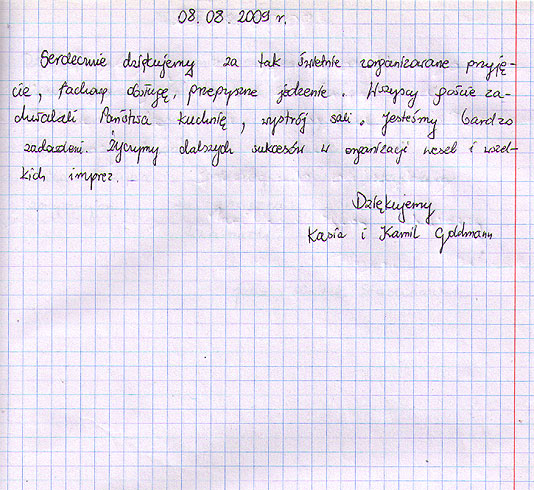 08.08.2009 r.
Serdecznie dziękujemy za tak świetnie zorganizowane przyję-
cie, fachową obsługę, przepyszne jedzenie. Wszyscy goście za-
chwalali Państwa kuchnię, wystrój sali. Jesteśmy bardzo
zadowoleni. Życzymy dalszych sukcesów w organizacji wesel i wszel-
kich imprez.
Dziękujemy
Kasia i Kamil Goldmann